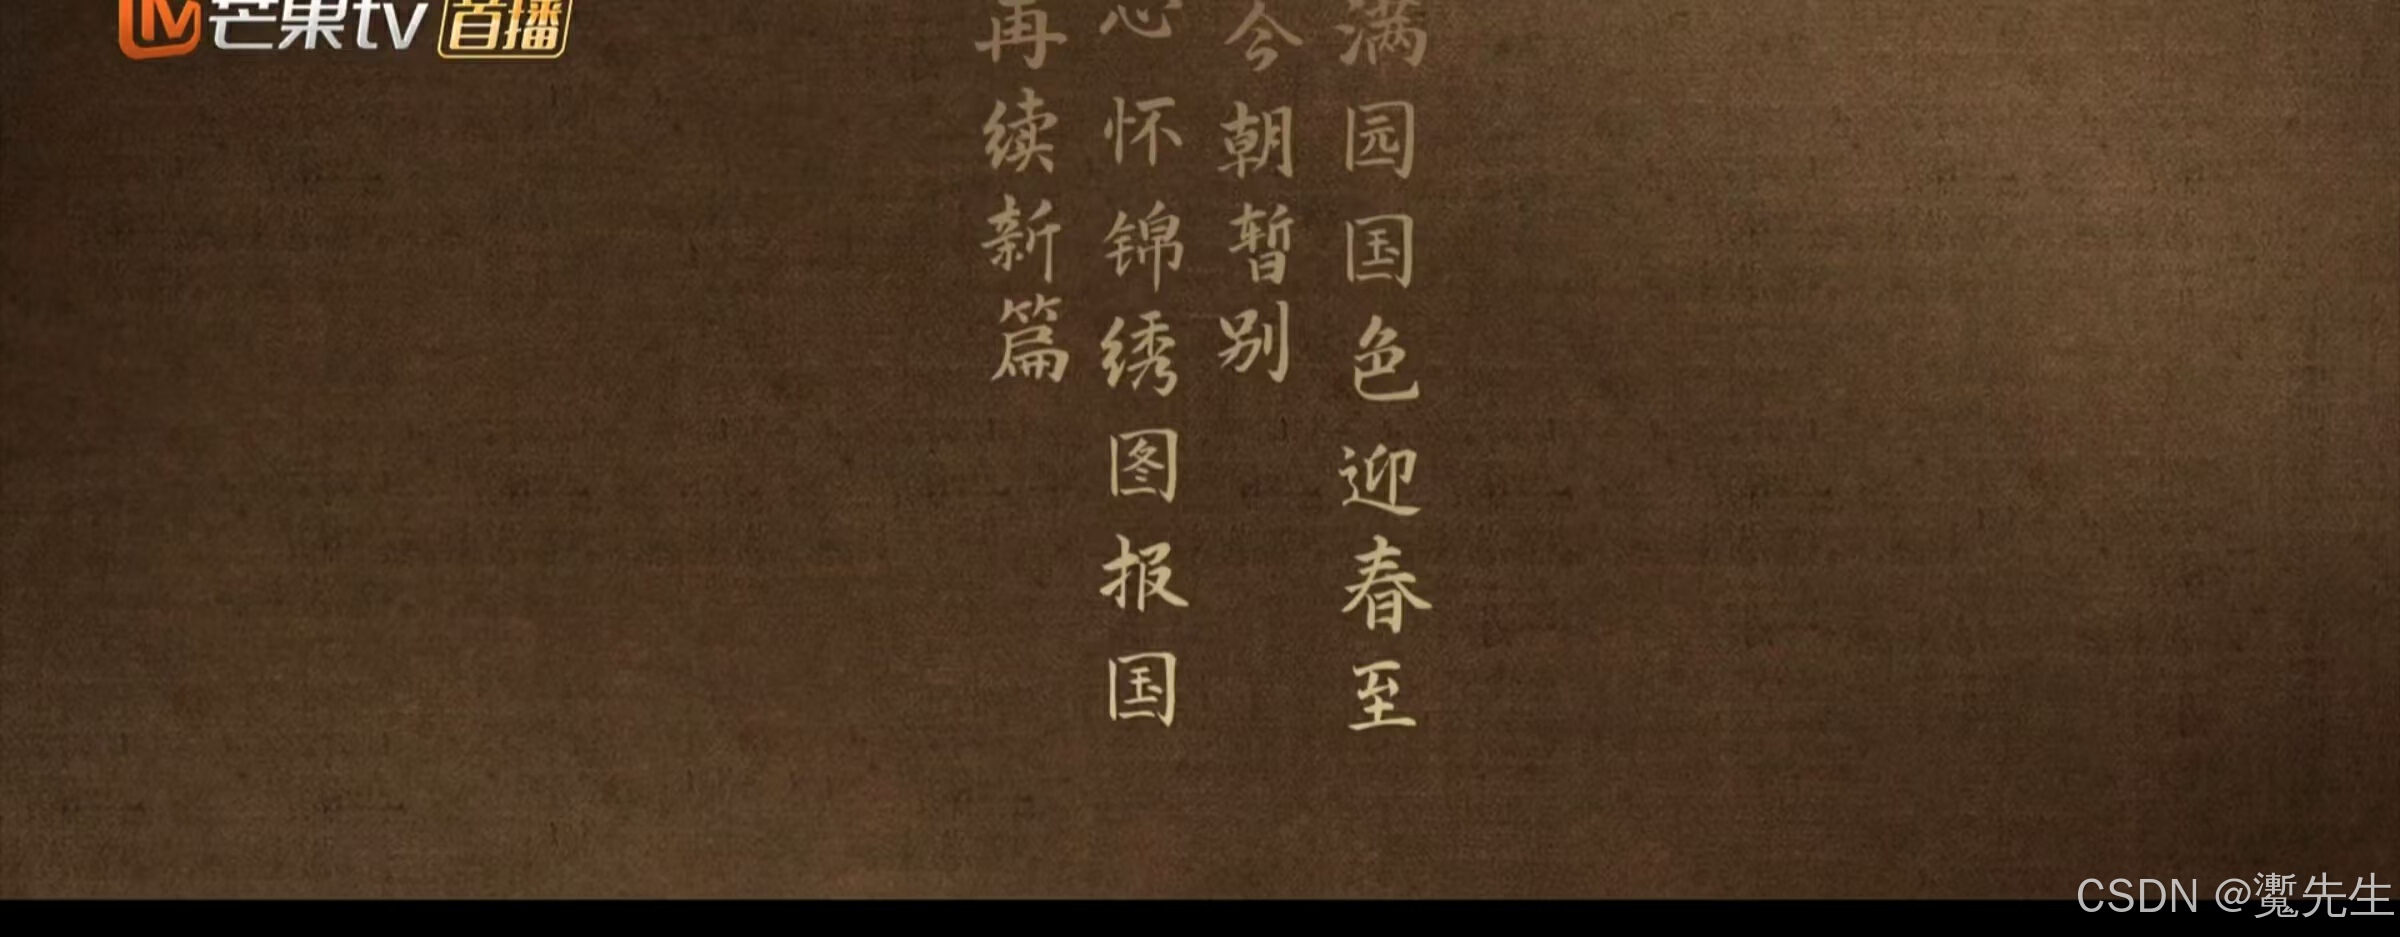 芒果tv 首播
满园国色迎春至
今朝暂别
心怀锦绣图报国
再续新篇
CSDN @瀿先生